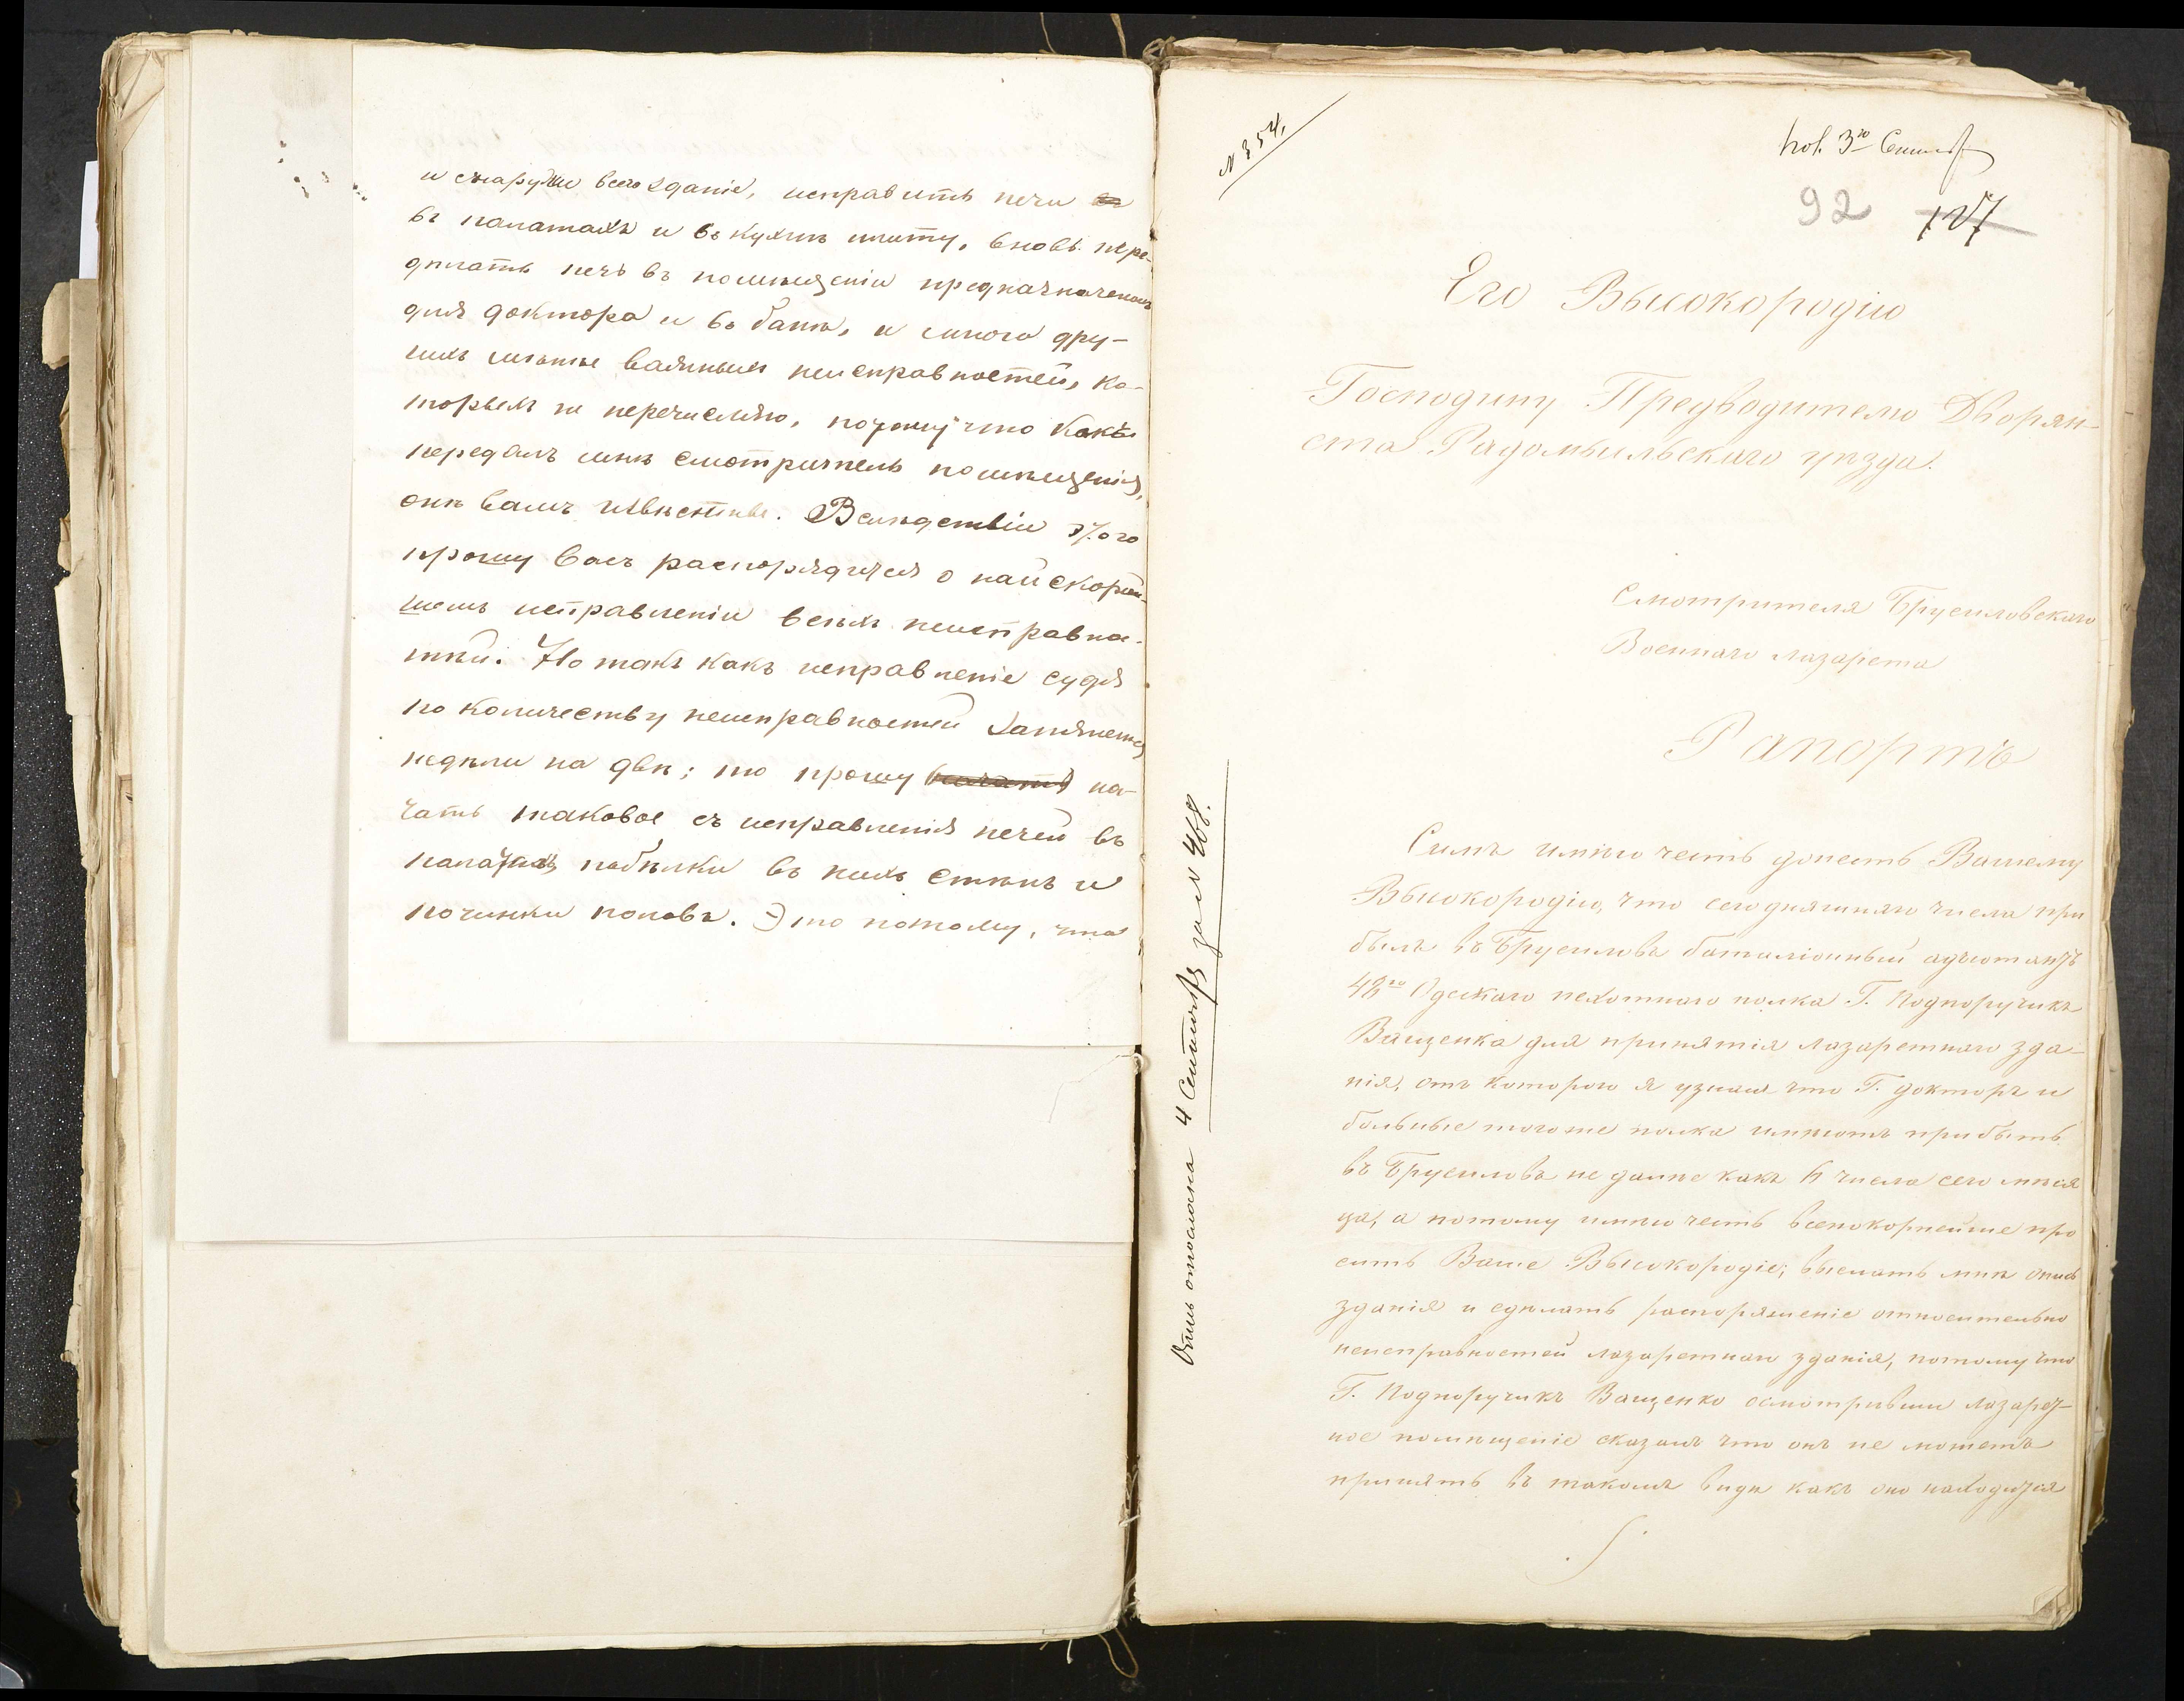 и снаружи всего зданіе, исправить печи
въ палатахъ и въ кухнѣ плиту, вновь пере-
дѣлать печь въ помѣщеніи предназначеномъ
для доктора и въ банѣ, и много дру-
гихъ менѣе важныхъ неисправностей, ко-
торыхъ не перечисляю, потому что какъ
передалъ мнѣ смотритель помѣщенія,
онѣ вамъ извѣстны. Вслѣдствіи этого
прошу васъ распорядится о наискорѣй-
шемъ исправленіи всѣхъ неисправно-
стей. Но такъ какъ исправленіе судя
по количеству неисправностей затянется
недѣли на двѣ; то прошу на-
чать таковое съ исправленія печей въ
палатахъ побѣлки въ нихъ стѣнъ и
починки половъ. Это потому, что
№ 354.
пол. 3го Сентяб
92 127
Его Высокородію
Господину Предводителю Дворян-
ства Радомысльскаго уѣзда.
Смотрителя Брусиловскаго
Военнаго лазарета
Рапортъ
Симъ имѣю честь донесть Вашему
Высокородію, что сегодняшняго числа при
былъ въ Брусиловъ баталіонный адъютантъ
48го Одескаго пехотнаго полка Г. Подпоручикъ
Ващенка для принятія лазаретнаго зда-
нія, отъ котораго я узналъ что Г. докторъ и
больные того же полка имѣютъ прибыть
въ Брусиловъ не далѣе какъ 6 числа сего мѣся
ца, а потому имѣю честь всепокорнейше про
сить Ваше Высокородіе, выслать мнѣ опись
зданія и сдѣлать распоряженіе относительно
неисправностей лазаретнаго зданія, потому что
Г. Подпоручикъ Ващенко осмотрѣвши лазарет-
ное помѣщеніе сказалъ что онъ не можетъ
принять въ такомъ видѣ какъ оно находится
4 Сентября за № 468.